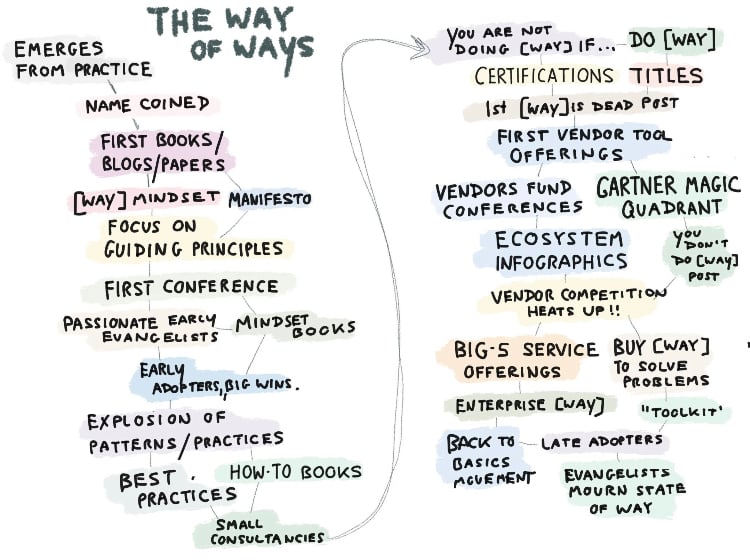 THE WAY
OF WAYS
EMERGES
FROM PRACTICE
NAME COINED
FIRST BOOKS/
BLOGS/PAPERS
[WAY] MINDSET
MANIFESTO
FOCUS ON
GUIDING PRINCIPLES
FIRST CONFERENCE
PASSIONATE EARLY
EVANGELISTS
MINDSET
BOOKS
EARLY
ADOPTERS, BIG WINS.
EXPLOSION OF
PATTERNS/PRACTICES
BEST
PRACTICES
HOW-TO BOOKS
SMALL
CONSULTANCIES
YOU ARE NOT
DOING [WAY] IF...
DO [WAY]
CERTIFICATIONS
TITLES
1st [WAY] IS DEAD POST
FIRST VENDOR TOOL
OFFERINGS
VENDORS FUND
CONFERENCES
GARTNER MAGIC
QUADRANT
ECOSYSTEM
INFOGRAPHICS
YOU
DON'T
DO [WAY]
POST
VENDOR COMPETITION
HEATS UP!!
BIG-5 SERVICE
OFFERINGS
BUY [WAY]
TO SOLVE
PROBLEMS
ENTERPRISE [WAY]
"TOOLKIT'
BACK TO
BASICS
MOVEMENT
LATE ADOPTERS
EVANGELISTS
MOURN STATE
OF WAY